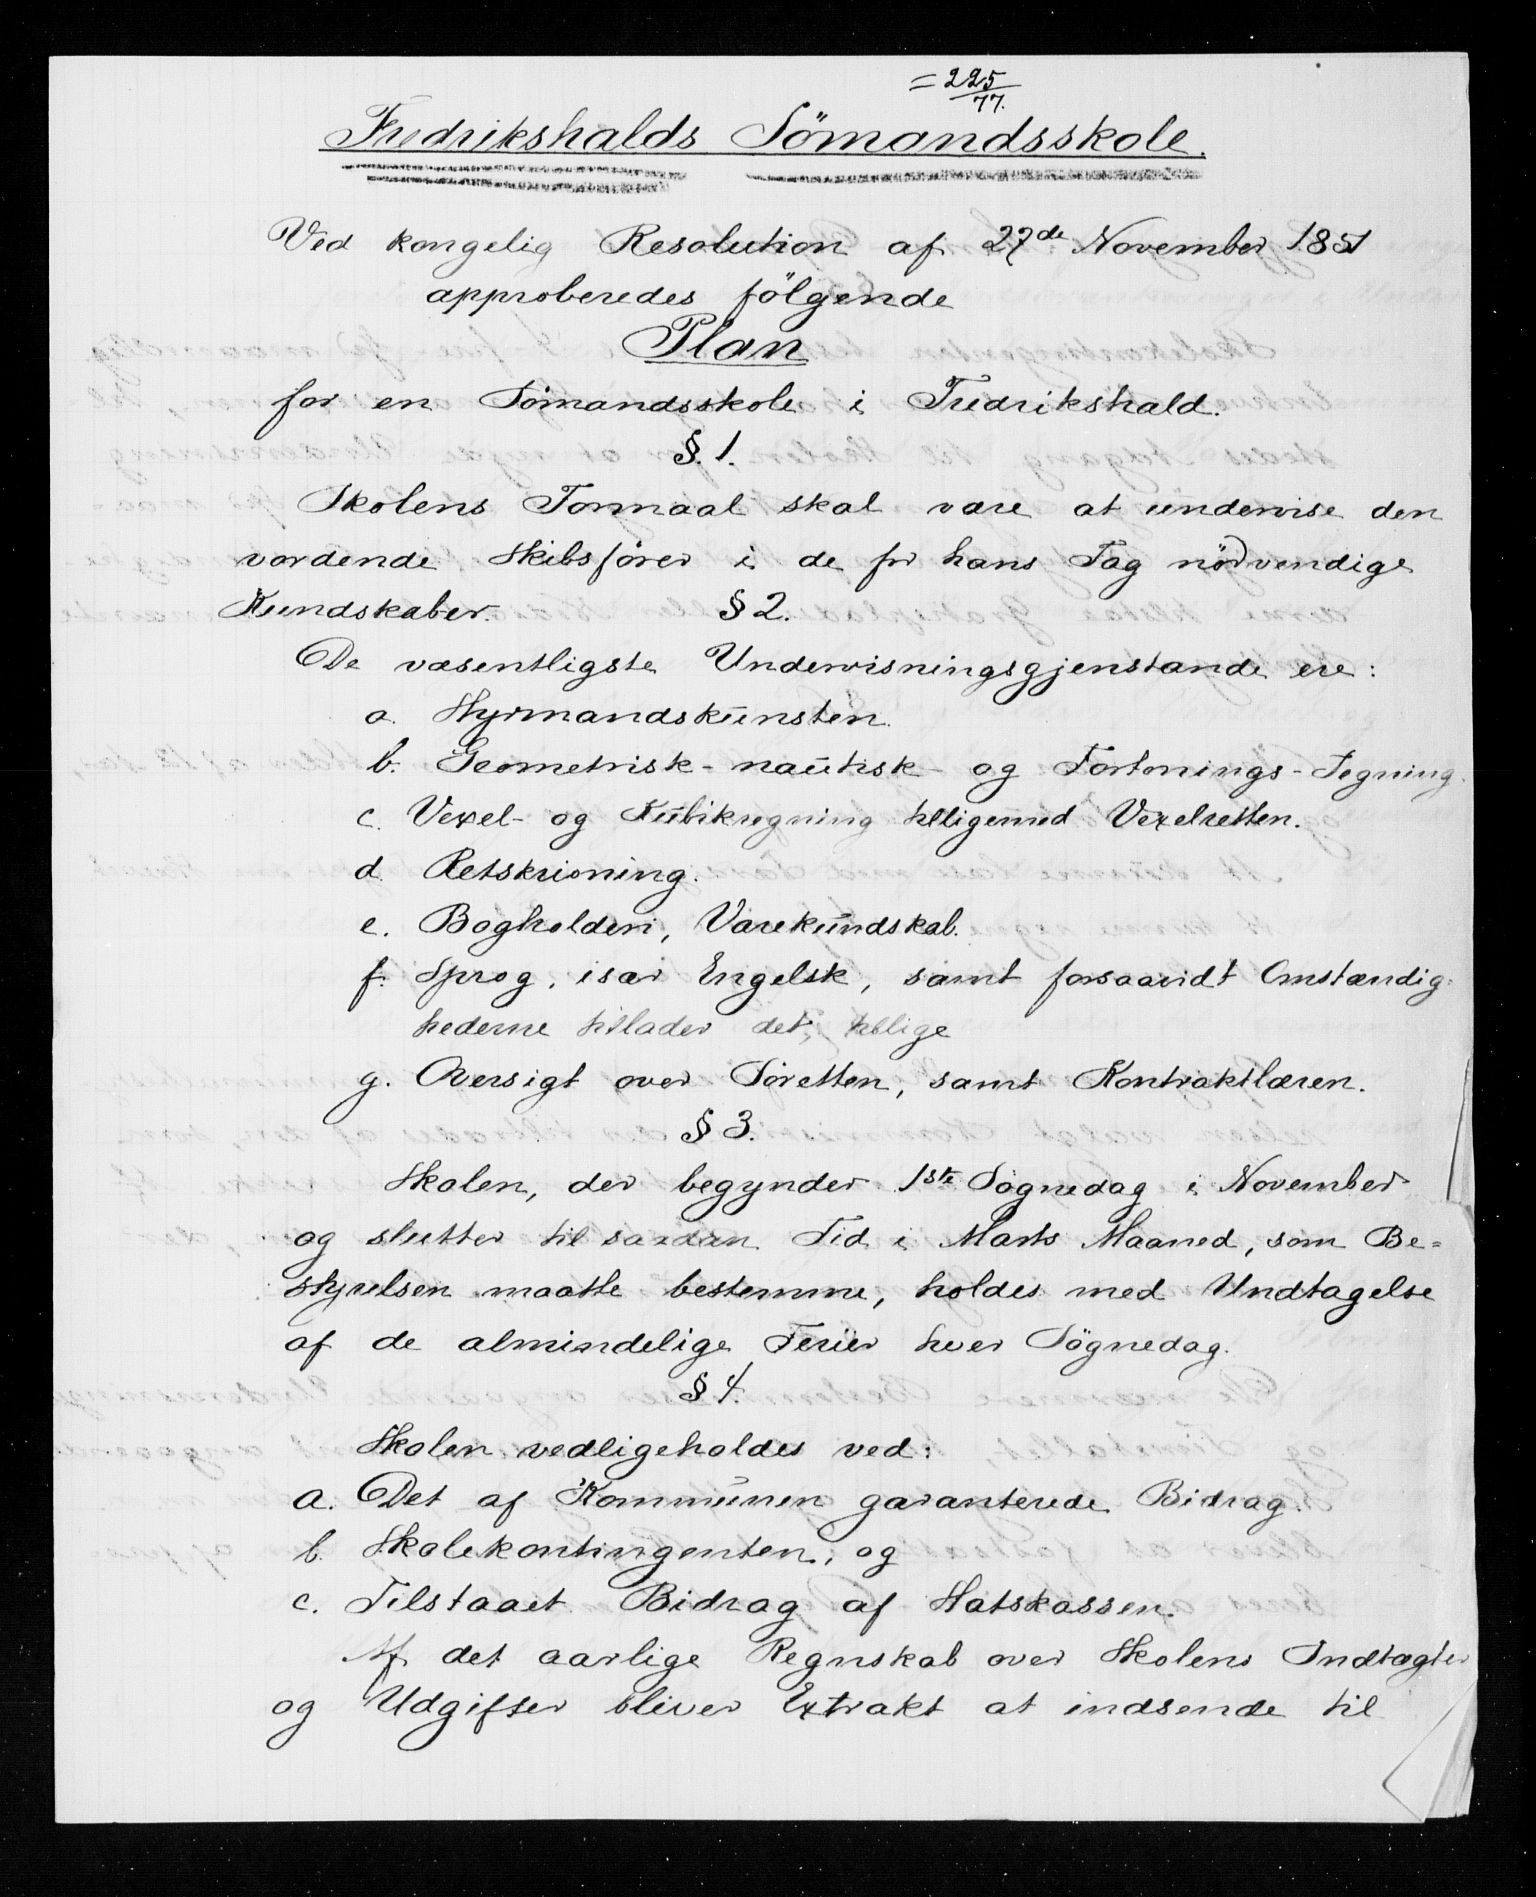 = 225/77.
Fredrikshalds Sömandsskole.
Ved kongelig Resolution af 27de November 1851
approberedes fölgende
Plan
for en Sömandsskole i Fredrikshald.
§. 1.
Skolens Formaal skal være at undervise den
vordende Skibsförer i de for hans Fag nödvendige
Kundskaber. § 2.
De væsentligste Undervisningsgjenstande ere:
a. Styrmandskunsten.
b. Geometrisk- nautisk- og Fortonings-Tegning.
c. Vexel- og Kubikregning tilligemed Vexelretten.
d. Retskrivning.
e. Bogholderi, Varekundskab.
f. Sprog, især Engelsk, samt forsaavidt Omstændig-
hederne tillader det, tillige
g. Oversigt over Söretten, samt Kontraktlæren.
§ 3.
Skolen, der begynder 1ste Sögnedag i November
og slutter til saadan Tid i Marts Maaned, som Be-
styrelsen maatte bestemme, holdes med Undtagelse
af de almindelige Ferier hver Sögnedag.
§ 4.
Skolen vedligeholdes ved:
a. Det af Kommunen garanterede Bidrag.
b. Skolekontingenten, og
c. Tilstaaet Bidrag af Statskassen.
Af det aarlige Regnskab over Skolens Indtægter
og Udgifter bliver Extrakt at indsende til